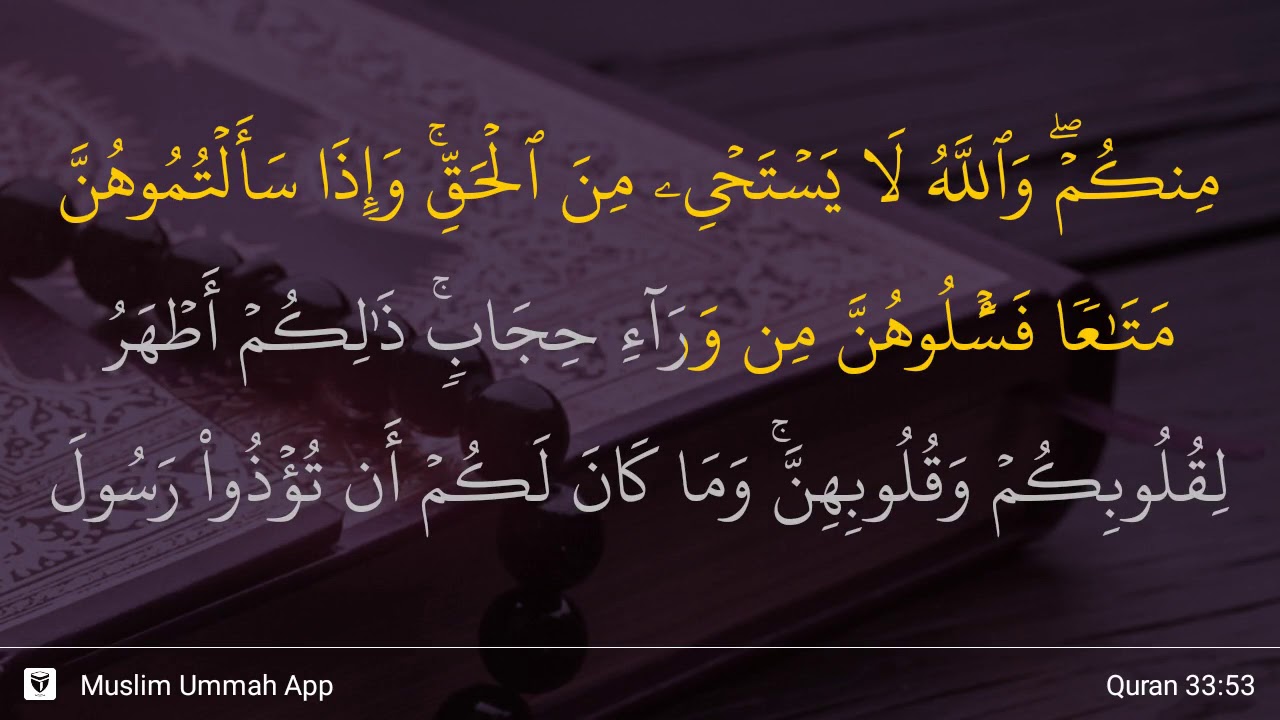 مِنكُمۡۖ وَٱللَّهُ لَا يَسۡتَحۡيِۦ مِنَ ٱلۡحَقِّۚ وَإِذَا سَأَلۡتُمُوهُنَّ
مَتَٰعٗا فَسۡـَٔلُوهُنَّ مِن وَرَآءِ حِجَابٖۚ ذَٰلِكُمۡ أَطۡهَرُ
لِقُلُوبِكُمۡ وَقُلُوبِهِنَّۚ وَمَا كَانَ لَكُمۡ أَن تُؤۡذُواْ رَسُولَ
Muslim Ummah App
Quran 33:53